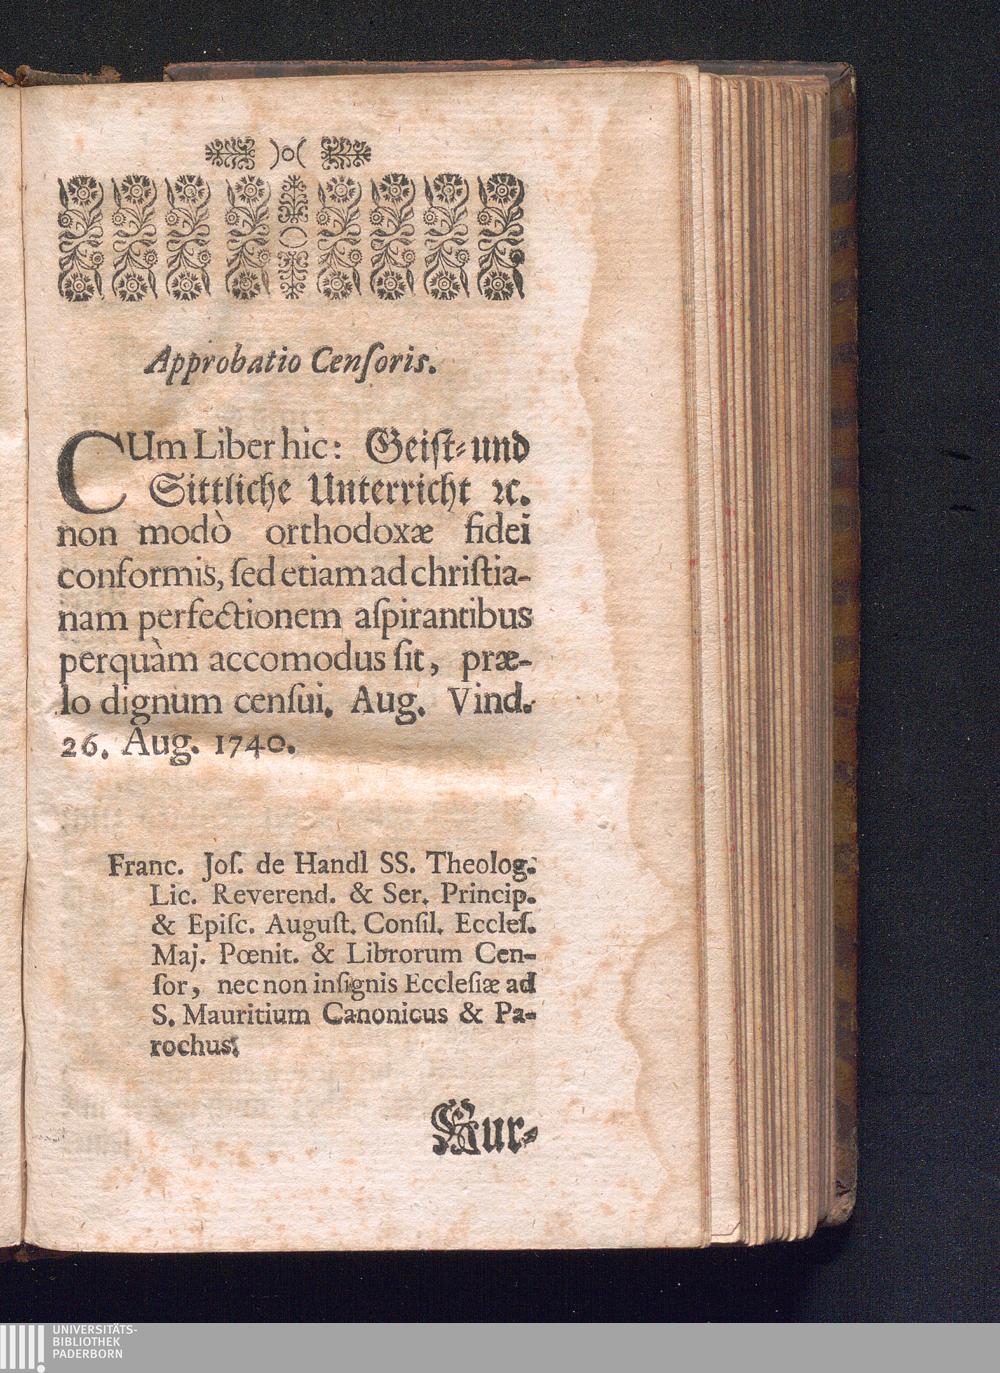 )o(
Approbatio Censoris.
CUm Liber hic: Geist- und
Sittliche Unterricht ꝛc.
non modò orthodoxæ fidei
conformis, ſed etiam ad chriſtia-
nam perfectionem aſpirantibus
perquàm accomodus ſit, præ-
lo dignum cenſui. Aug. Vind.
26. Aug. 1740.
Franc. Joſ. de Handl SS. Theolog.
Lic. Reverend. & Ser. Princip.
& Epiſc. Auguſt. Conſil. Eccleſ.
Maj. Pœnit. & Librorum Cen-
ſor, nec non inſignis Eccleſiæ ad
S. Mauritium Canonicus & Pa-
rochus.
Kur-
UNIVERSITÄTS-
BIBLIOTHEK
PADERBORN